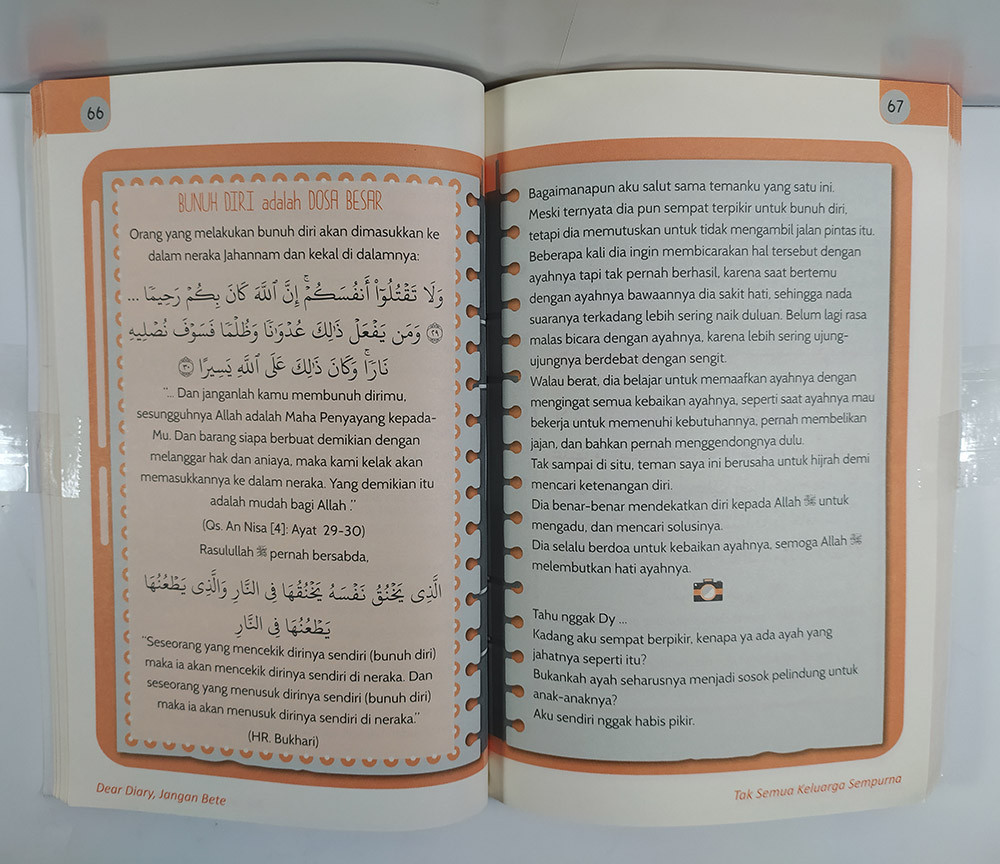 66
BUNUH DIRI adalah DOSA BESAR
Orang yang melakukan bunuh diri akan dimasukkan ke
dalam neraka Jahannam dan kekal di dalamnya:
وَلَا تَقْتُلُوٓا۟ أَنفُسَكُمْ ۚ إِنَّ ٱللَّهَ كَانَ بِكُمْ رَحِيمًا ...
﴿٢٩﴾ وَمَن يَفْعَلْ ذَٰلِكَ عُدْوَٰنًا وَظُلْمًا فَسَوْفَ نُصْلِيهِ
نَارًا ۚ وَكَانَ ذَٰلِكَ عَلَى ٱللَّهِ يَسِيرًا ﴿٣٠﴾
"... Dan janganlah kamu membunuh dirimu,
sesungguhnya Allah adalah Maha Penyayang kepada-
Mu. Dan barang siapa berbuat demikian dengan
melanggar hak dan aniaya, maka kami kelak akan
memasukkannya ke dalam neraka. Yang demikian itu
adalah mudah bagi Allah ."
(Qs. An Nisa [4]: Ayat 29-30)
Rasulullah ﷺ pernah bersabda,
الَّذِى يَخْنُقُ نَفْسَهُ يَخْنُقُهَا فِى النَّارِ وَالَّذِى يَطْعُنُهَا
يَطْعُنُهَا فِى النَّارِ
"Seseorang yang mencekik dirinya sendiri (bunuh diri)
maka ia akan mencekik dirinya sendiri di neraka. Dan
seseorang yang menusuk dirinya sendiri (bunuh diri)
maka ia akan menusuk dirinya sendiri di neraka."
(HR. Bukhari)
Dear Diary, Jangan Bete
67
Bagaimanapun aku salut sama temanku yang satu ini.
Meski ternyata dia pun sempat terpikir untuk bunuh diri,
tetapi dia memutuskan untuk tidak mengambil jalan pintas itu.
Beberapa kali dia ingin membicarakan hal tersebut dengan
ayahnya tapi tak pernah berhasil, karena saat bertemu
dengan ayahnya bawaannya dia sakit hati, sehingga nada
suaranya terkadang lebih sering naik duluan. Belum lagi rasa
malas bicara dengan ayahnya, karena lebih sering ujung-
ujungnya berdebat dengan sengit.
Walau berat, dia belajar untuk memaafkan ayahnya dengan
mengingat semua kebaikan ayahnya, seperti saat ayahnya mau
bekerja untuk memenuhi kebutuhannya, pernah membelikan
jajan, dan bahkan pernah menggendongnya dulu.
Tak sampai di situ, teman saya ini berusaha untuk hijrah demi
mencari ketenangan diri.
Dia benar-benar mendekatkan diri kepada Allah ﷻ untuk
mengadu, dan mencari solusinya.
Dia selalu berdoa untuk kebaikan ayahnya, semoga Allah ﷻ
melembutkan hati ayahnya.
Tahu nggak Dy ...
Kadang aku sempat berpikir, kenapa ya ada ayah yang
jahatnya seperti itu?
Bukankah ayah seharusnya menjadi sosok pelindung untuk
anak-anaknya?
Aku sendiri nggak habis pikir.
Tak Semua Keluarga Sempurna